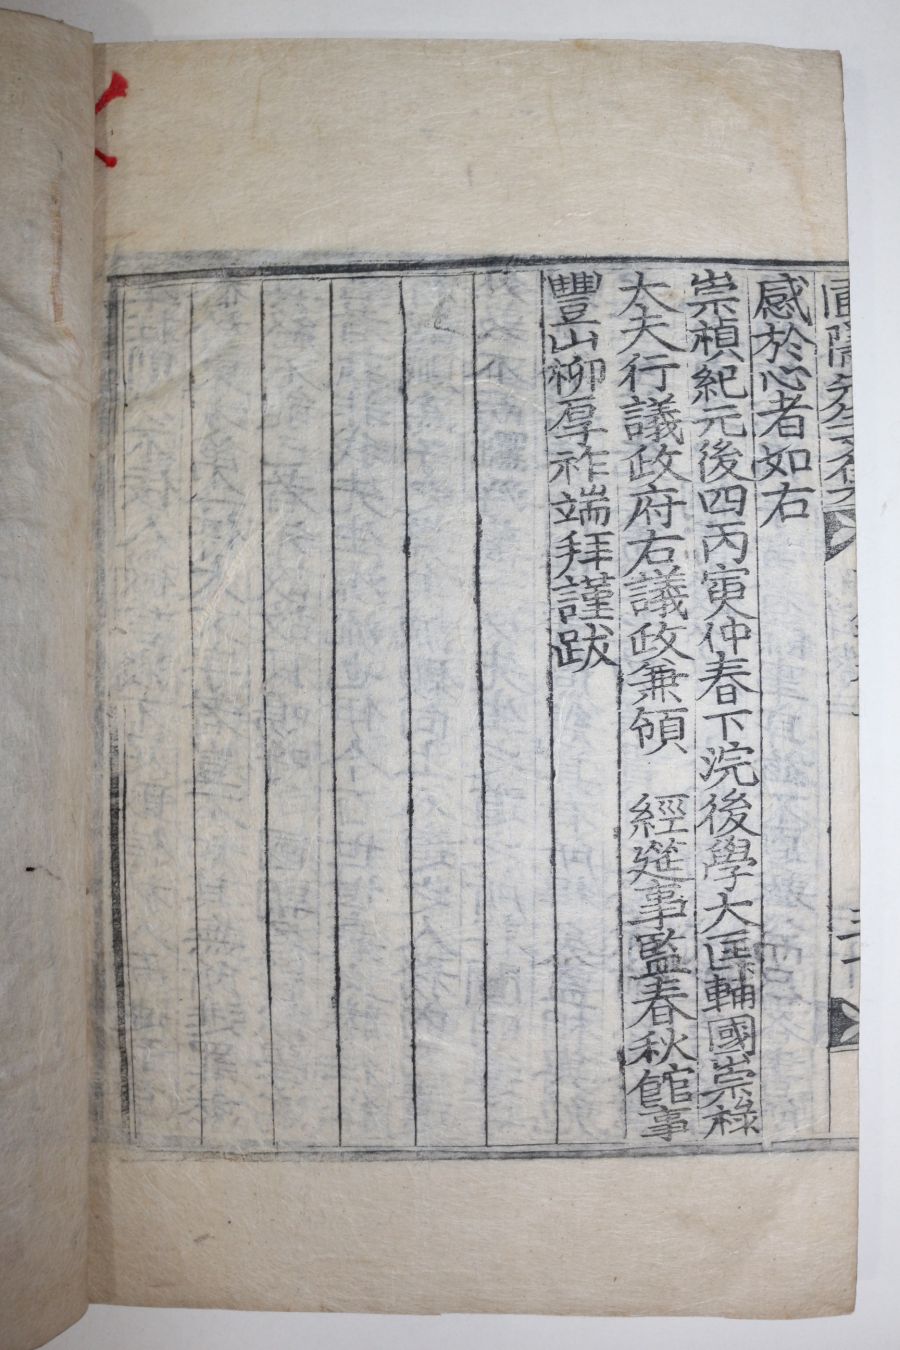 先生文集
感於心者如右
崇禎紀元後四丙寅仲春下浣後學大匡輔國崇祿
大夫行議政府右議政兼領 經筵事監春秋館事
豐山柳厚祚端拜謹跋